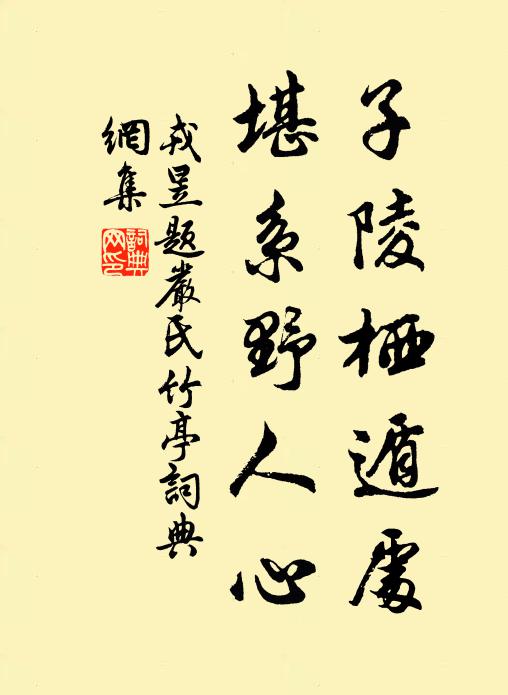 子陵栖遁處
堪系野人心
戎昱題嚴氏竹亭詞典
網集
詞典
网印